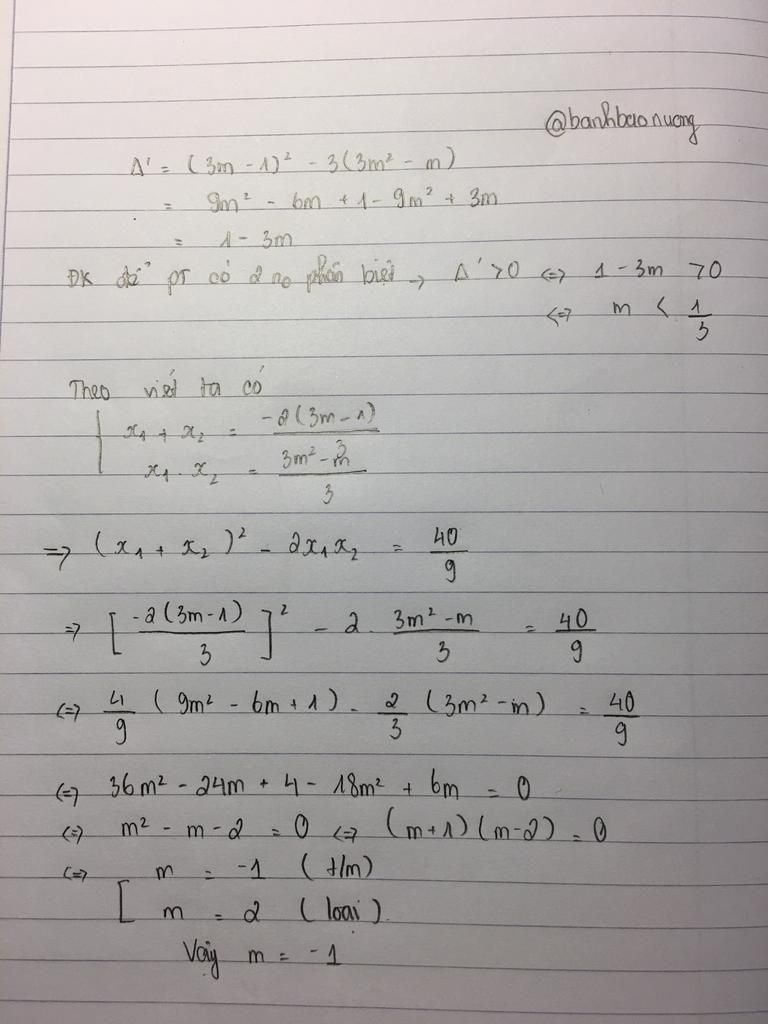 @banhbaonuong
Δ' = (3m - 1)² - 3(3m² - m)
= 9m² - 6m + 1 - 9m² + 3m
= 1 - 3m
ĐK để pt có 2 no phân biệt → Δ' > 0 <=> 1 - 3m > 0
<=> m < 1/3
Theo viét ta có
{ x₁ + x₂ = -2(3m - 1)/3
x₁ . x₂ = (3m² - m)/3
=> (x₁ + x₂)² - 2x₁x₂ = 40/9
=> [-2(3m-1)/3]² - 2. (3m² - m)/3 = 40/9
<=> 4/9 (9m² - 6m + 1) - 2/3 (3m² - m) = 40/9
<=> 36m² - 24m + 4 - 18m² + 6m = 0
<=> m² - m - 2 = 0 <=> (m+1)(m-2) = 0
<=> [ m = -1 (t/m)
m = 2 (loại).
Vậy m = -1